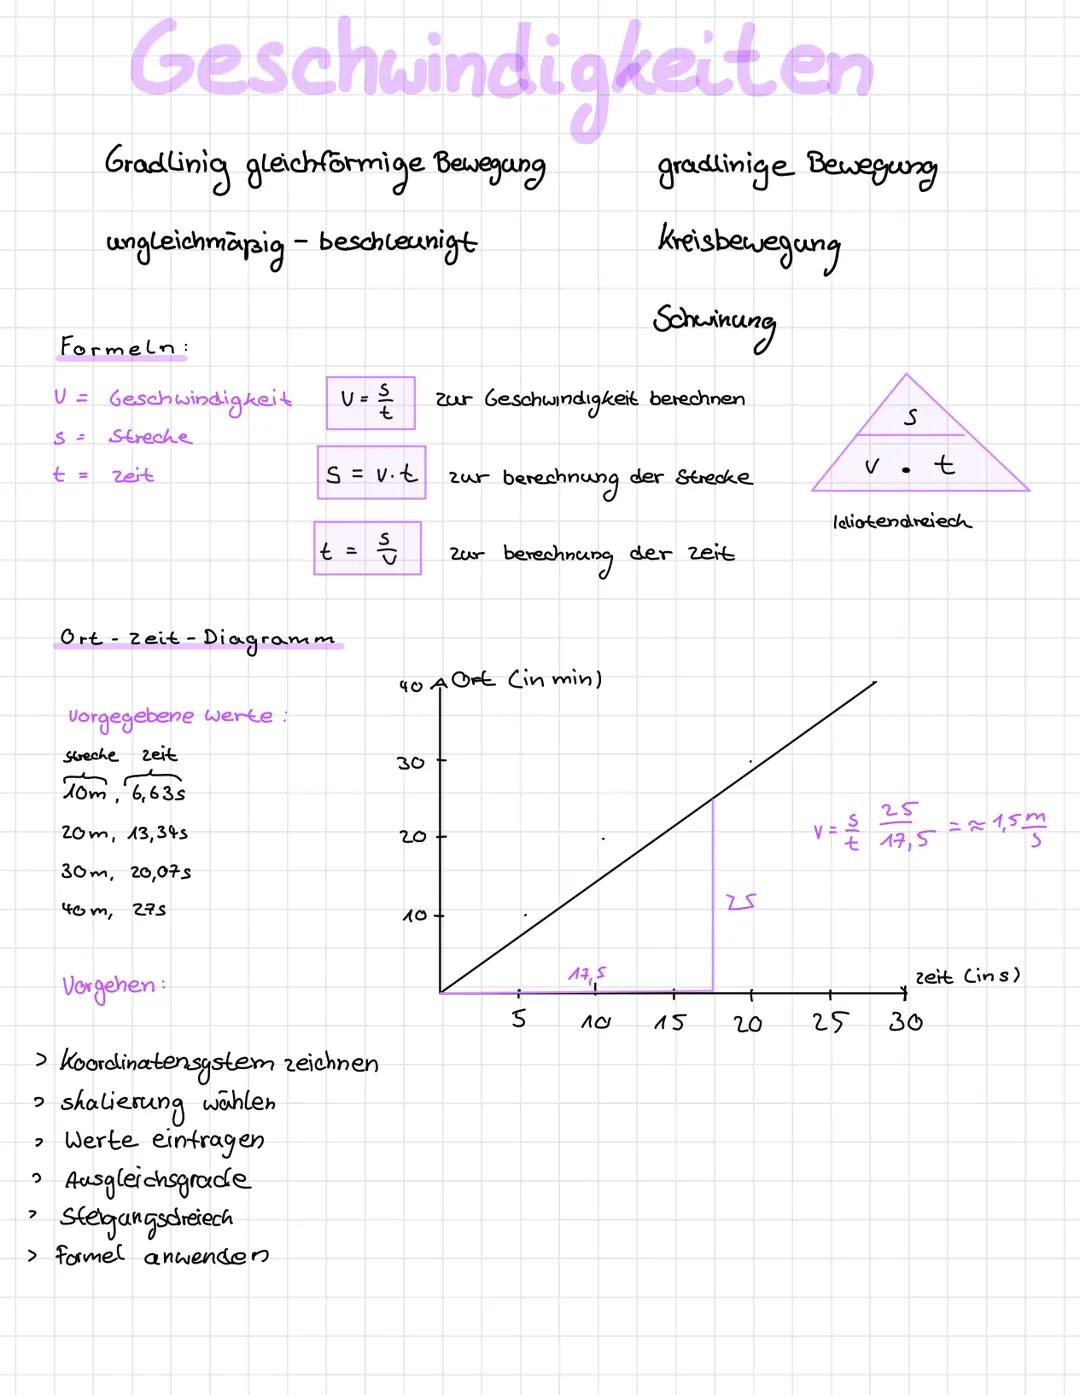 Geschwindigkeiten
Gradlinig gleichförmige Bewegung
gradlinige Bewegung
ungleichmäßig - beschleunigt
Kreisbewegung
Schwinung
Formeln:
V = Geschwindigkeit
s = Strecke
t = zeit
V = s/t zur Geschwindigkeit berechnen
S = v·t zur berechnung der Strecke
t = s/v zur berechnung der zeit
s
v · t
Idiotendreieck
Ort - zeit - Diagramm
Vorgegebene Werte:
strecke zeit
10m, 6,63s
20m, 13,34s
30m, 20,07s
40m, 27s
40 Ort (in min)
30
20
10
25
17,5
v = s/t 25/17,5 = ≈ 1,5 m/s
zeit (in s)
5 10 15 20 25 30
Vorgehen:
> Koordinatensystem zeichnen
> skalierung wählen
> Werte eintragen
> Ausgleichsgrade
> Steigungsdreieck
> Formel anwenden